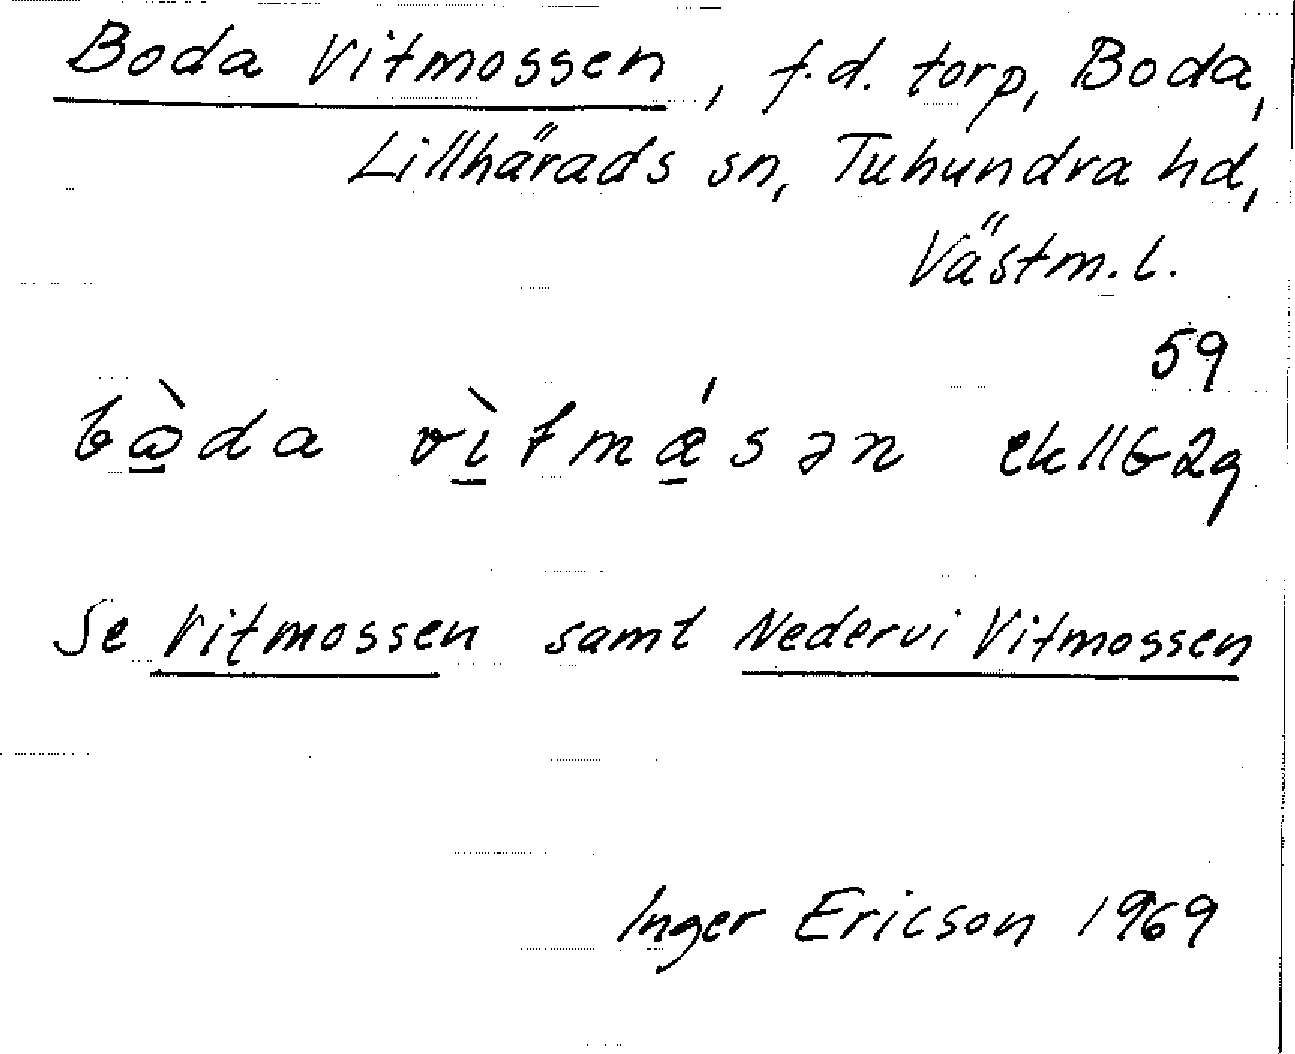 Boda Vitmossen, f.d. torp, Boda,
Lillhärads sn, Tuhundra hd,
Västm.l.
59
bὼda vìtmǽsən ek116 2g
Se Vitmossen samt Nedervi Vitmossen
Inger Ericson 1969